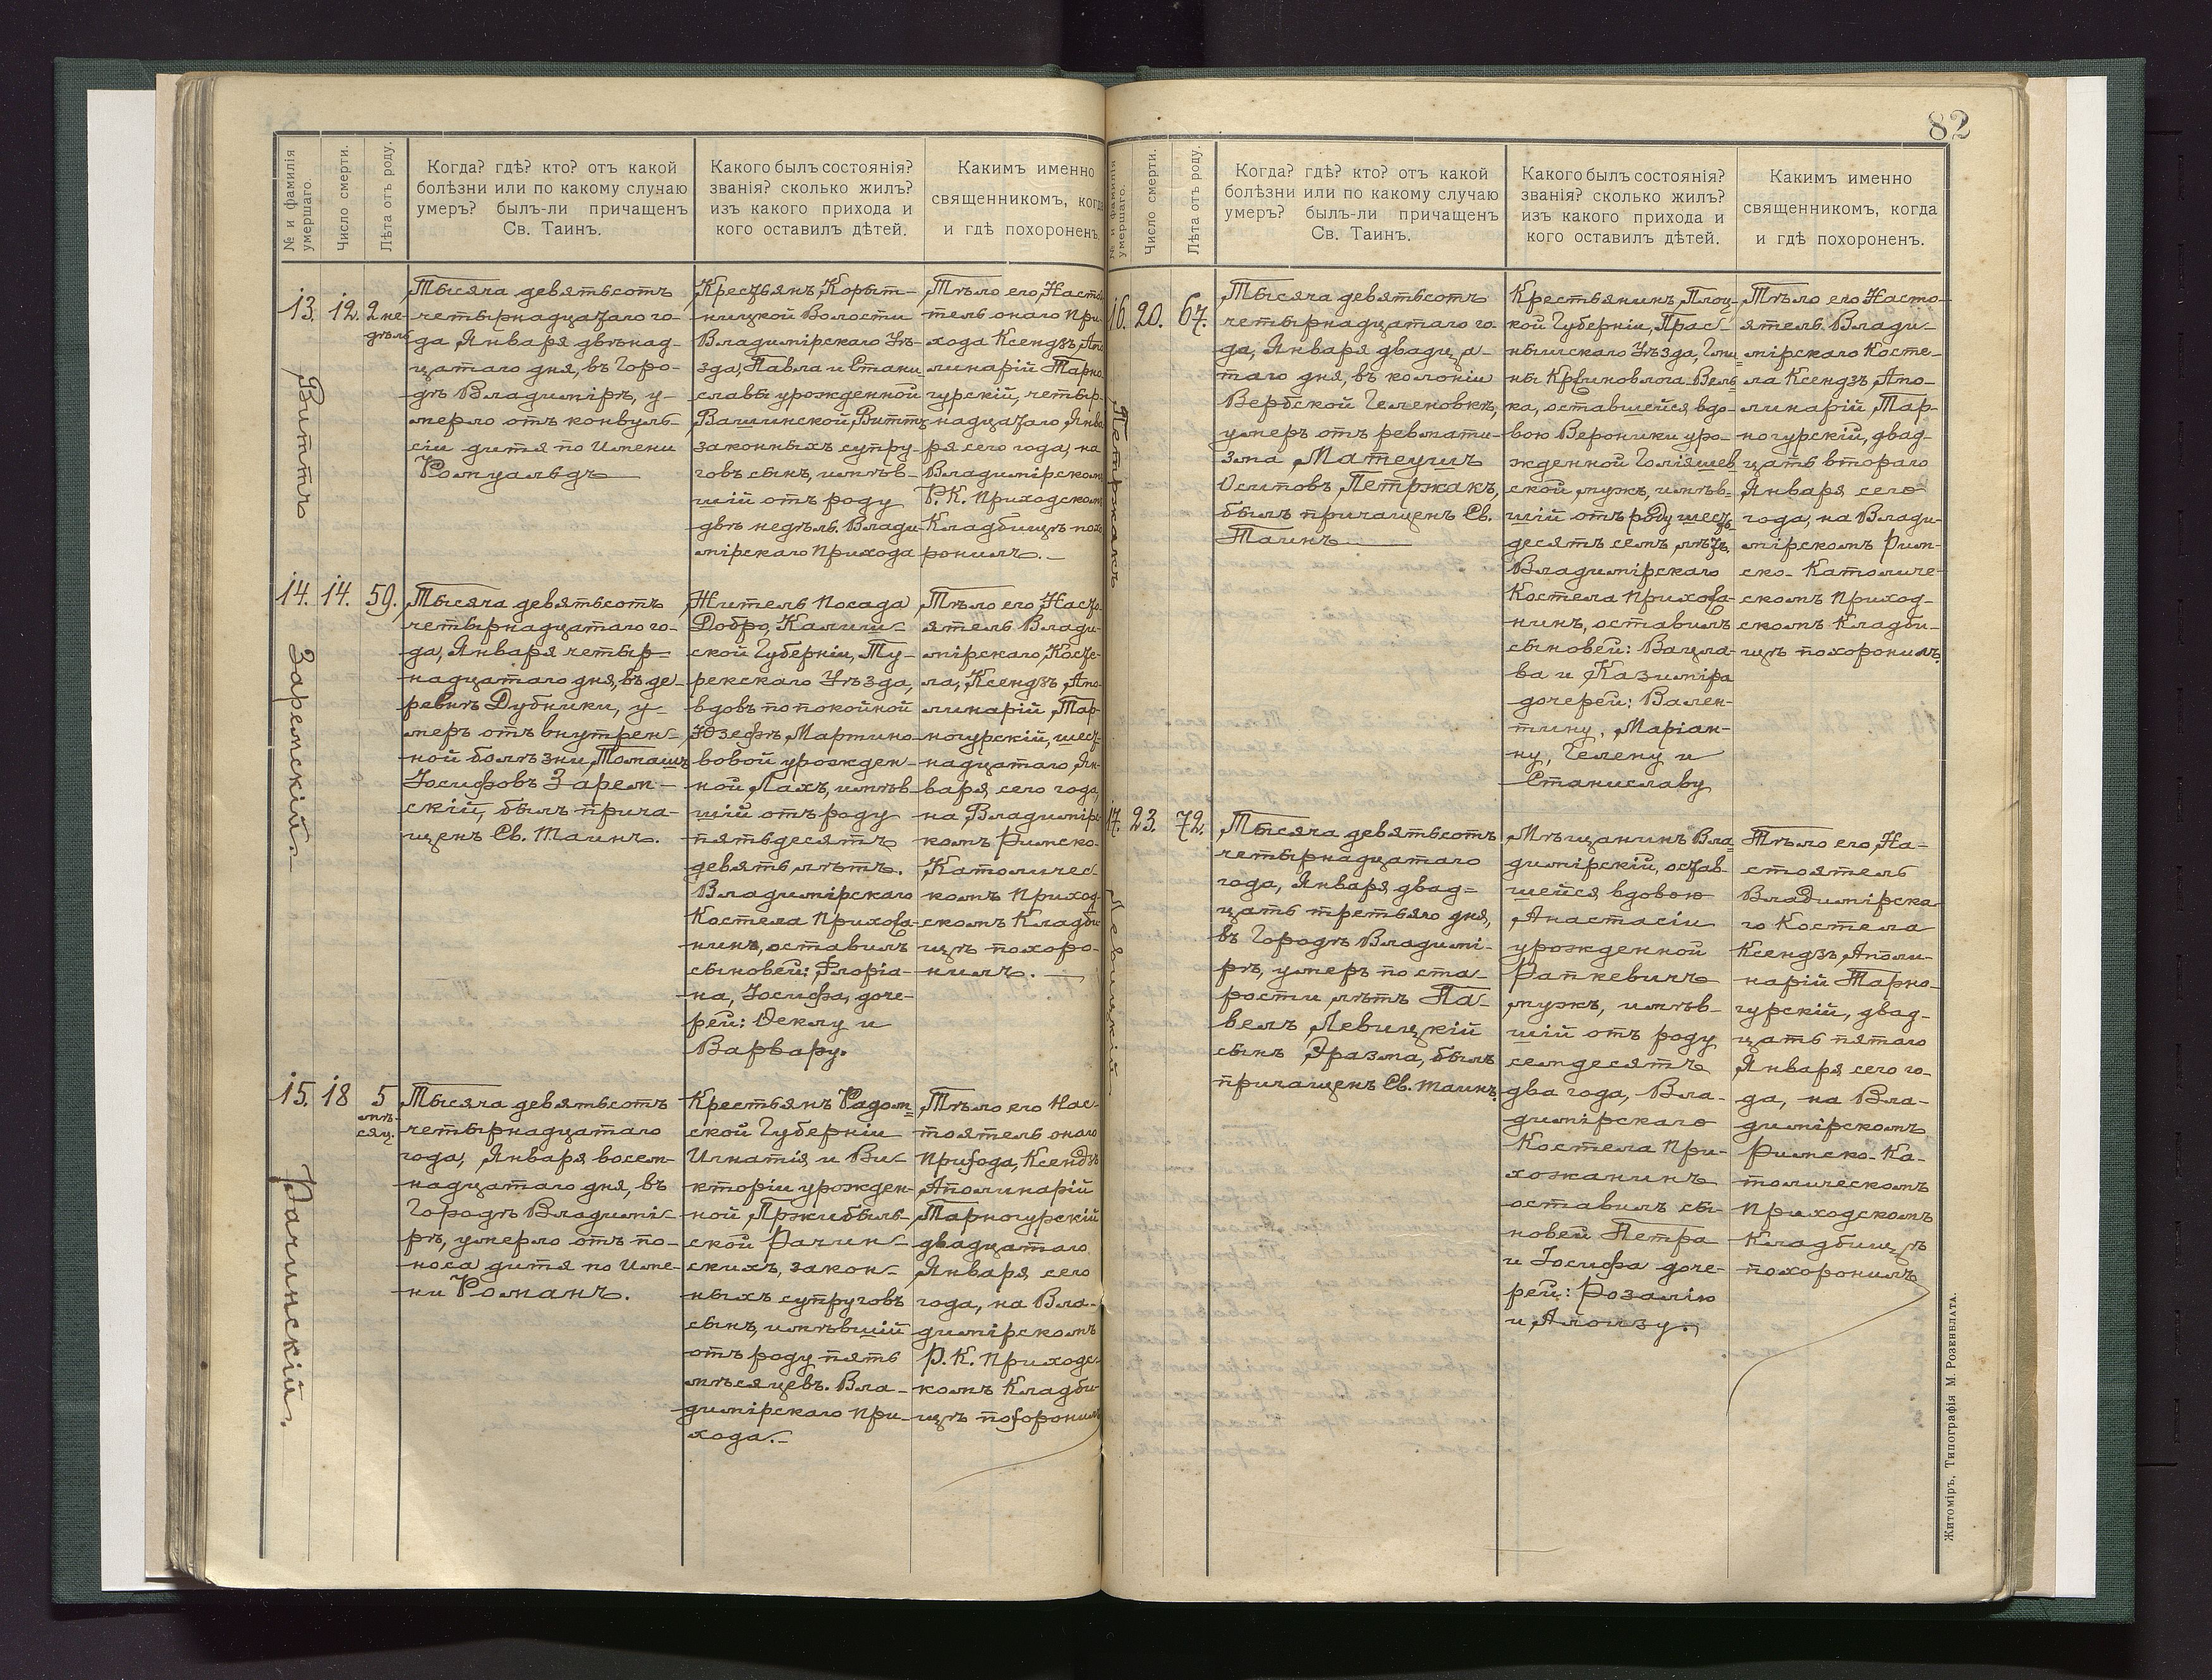 82
№ и фамилія
умершаго.
Число смерти.
Лѣта отъ роду.
Когда? гдѣ? кто? отъ какой
болѣзни или по какому случаю
умеръ? былъ-ли причащенъ
Св. Таинъ.
Какого былъ состоянія?
званія? сколько жилъ?
изъ какого прихода и
кого оставилъ дѣтей.
Какимъ именно
священникомъ, когда
и гдѣ похороненъ.
13.
Виттъ
12.
2 не-
дѣль
Тысяча девятьсотъ
четырнадцатаго го-
да, Января двѣнад-
цатаго дня, въ Горо-
дѣ Владимірѣ, у-
мерло отъ конвуль-
сіи дитя по имени
Ромуальдъ
Крестьянъ, Корыт-
ницкой Волости
Владимірскаго Уѣ-
зда, Павла и Стани-
славы урожденной
Вашинской, Виттъ
законныхъ супру-
говъ сынъ, имѣв-
шій отъ роду
двѣ недѣль. Влади-
мірскаго Прихода
Тѣло его, Насто
тель онаго При-
хода Ксендзъ, Апо
линарій Тарно
гурскій, четыр-
надцатаго Янва
ря сего года, на
Владимірскомъ
Р. К. Приходскомъ
Кладбищѣ похо
ронилъ.
14.
Зарем­скій
14.
59.
Тысяча девятьсотъ
четырнадцатаго го-
да, Января четыр-
надцатаго дня, въ де-
ревнѣ Дубники, у-
меръ отъ внутрен-
ной болѣзни, Томашъ
Іосифовъ Зарем-
скій, былъ прича-
щенъ Св. Таинъ.
Житель Посада
Добро, Калиш-
ской Губерніи, Ту-
рекскаго Уѣзда,
вдовъ по покойной
Юзефѣ, Мартино-
вовой урожден-
ной Лахъ, имѣв
шій отъ роду
пятьдесятъ
девять лѣтъ.
Владимірскаго
Костела Прихожа-
нинъ, оставилъ
сыновей: Флоріа-
на, Іосифа, доче-
рей: Ѳеклу и
Варвару.
Тѣло его, Насто-
ятель Влади-
мірскаго, Косте-
ла, Ксендзъ, Апо-
линарій, Тар-
ногурскій, шест-
надцатаго, Ян-
варя, сего года,
на Владимірс-
комъ Римско-
Католичес-
комъ Приход-
скомъ Кладби-
щѣ похоро-
нилъ.
15.
Рачинскій.
18
5
мѣ-
сяц.
Тысяча девятьсотъ
четырнадцатаго
года, Января восем-
надцатаго дня, въ
Городѣ Владимі-
рѣ, умерло отъ по-
носа дитя по име-
ни Романъ.
Крестьянъ Радом-
ской Губерніи
Игнатія и Ви-
кторіи урожден-
ной Пржибыль-
ской Рачин-
скихъ, закон-
ныхъ супруговъ
сынъ, имѣвшій
отъ роду пять
мѣсяцевъ. Вла-
димірскаго При-
хода.
Тѣло его Нас-
тоятель онаго
Прихода, Ксендзъ
Аполинарій
Тарногурскій
двадцатаго
Января, сего
года, на Вла-
димірскомъ
Р. К. Приходс-
комъ Кладби-
щѣ похоронилъ
№ и фамилія
умершаго.
Число смерти.
Лѣта отъ роду.
Когда? гдѣ? кто? отъ какой
болѣзни или по какому случаю
умеръ? былъ-ли причащенъ
Св. Таинъ.
Какого былъ состоянія?
званія? сколько жилъ?
изъ какого прихода и
кого оставилъ дѣтей.
Какимъ именно
священникомъ, когда
и гдѣ похороненъ.
16.
Петржакъ
20.
67.
Тысяча девятьсотъ
четырнадцатаго го-
да, Января двадца-
таго дня, въ колоніи
Вербской Геленовкѣ,
умеръ отъ ревмати-
зма Матеушъ
Осиповъ Петржакъ,
былъ причащенъ Св.
Таинъ
Крестьянинъ, Плоц-
кой Губерніи, Прас-
нышскаго Уѣзда, Гми-
ны Вель-
ка, оставшейся вдо-
вою Вероники уро-
жденной Голяшев
ской мужъ, имѣв-
шій отъ роду шесть
десятъ семь лѣтъ,
Владимірскаго
Костела Прихожа-
нинъ, оставилъ
сыновей: Вацла-
ва и Казиміра
дочерей: Вален-
тину, Маріан-
ну, Гелену и
Станиславу
Тѣло его Насто-
ятель Влади-
мірскаго Косте-
ла Ксендзъ, Апо-
линарій Тар-
ногурскій, двад-
цать второго
Января сего
года, на Влади-
мірскомъ Рим-
ско-Католиче-
скомъ Приход-
скомъ Кладби-
щѣ похоронилъ.
17.
Левицкій
23.
72.
Тысяча девятьсотъ
четырнадцатаго
года, Января двад-
цать третьяго дня,
въ Городѣ Владимі-
рѣ, умеръ по ста-
рости лѣтъ Па-
велъ Левицкій
сынъ Эразма, былъ
причащенъ Св. Таинъ.
Мѣщанинъ Вла-
димірскій, остав-
шейся вдовою
Анастасіи
урожденной
Раткевичъ
мужъ, имѣв-
шій отъ роду
семдесятъ
два года, Вла-
димірскаго
Костела При-
хожанинъ
оставилъ сы-
новей Петра
и Іосифа доче-
рей: Розалію
и Алоизу.
Тѣло его, На-
стоятель
Владимірска-
го Костела
Ксендзъ, Аполи-
нарій Тарно-
гурскій, двад-
цать пятаго
Января сего го-
да, на Вла-
димірскомъ
Римско-Ка-
толическомъ
Приходскомъ
Кладбищѣ
похоронилъ
Житоміръ, Типографія М. Розенблата.